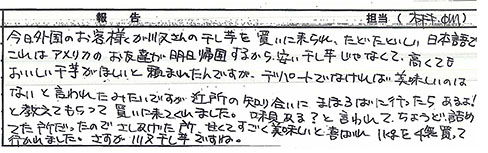 報告 担当（木木・中川）
今日外国のお客様が川又さんの干し芋を買いに来られ、たどたどしい日本語で
これはアメリカのお友達が明日帰国するから、安い干し芋じゃなくて、高くても
おいしい干芋がほしいと頼まれたんですが、デパートでなければ美味しいのは
ないと言われたみたいですが近所の知り合いにまほろばに行ったらあるよ！
と教えてもらって買いに来てくれました。味見ある？と言われて、ちょうど詰め
てた所だったのでさしあげた所、甘くてすごく美味しいと喜ばれ 1kgを4袋買って
行かれました。さすが川又干し芋ですね。